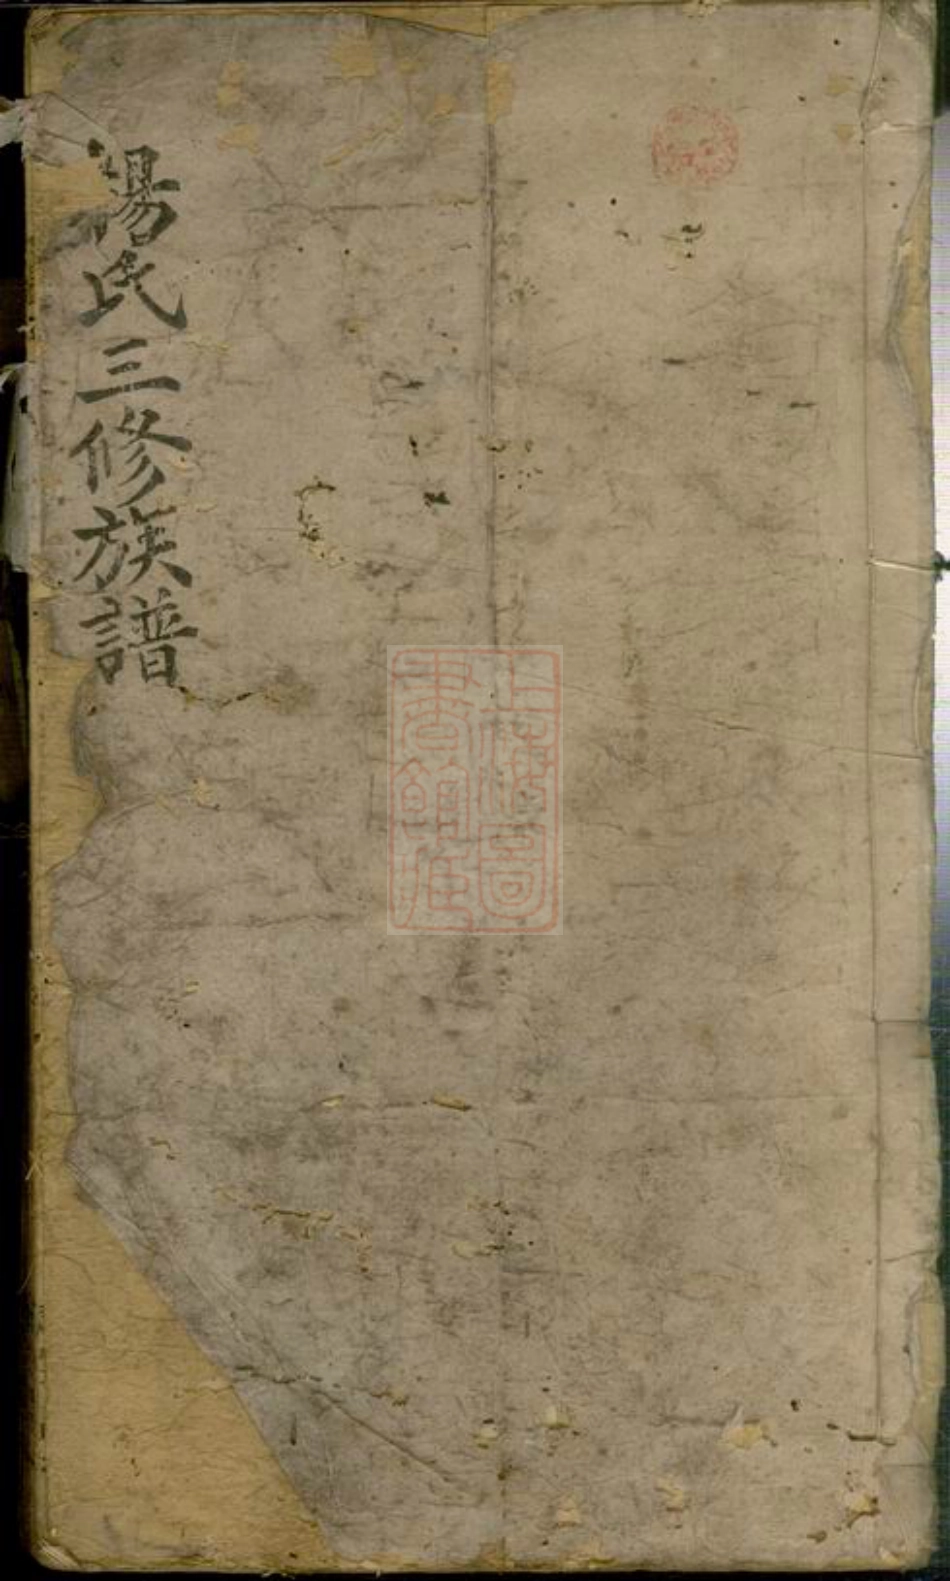 湯氏三修族譜
上海圖書館藏